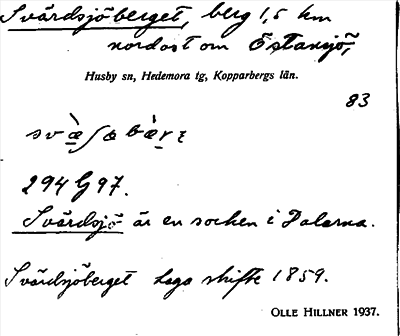 Svärdsjöberget, berg 1,5 km
nordost om Östansjö,
Husby sn, Hedemora tg, Kopparbergs län.
83
294 G 97.
Svärdsjö är en socken i Dalarna.
Svärdsjöberget Laga skifte 1859.
OLLE HILLNER 1937.